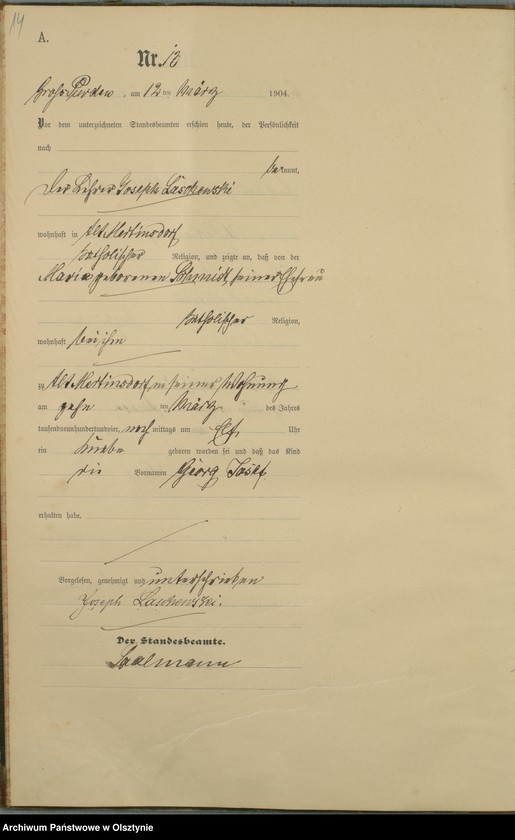 14
A.
Nr. 13
Groß Purden, am 12 ten März 1904.
Vor dem unterzeichneten Standesbeamten erschien heute, der Persönlichkeit
nach
bekannt,
Der Lehrer Joseph Laschewski
wohnhaft in Alt Mertinsdorf
katholischer Religion, und zeigte an, daß von der
Maria geborenen Schmidt, seiner Ehefrau
katholischer Religion,
wohnhaft bei ihm
zu Alt Mertinsdorf, in seiner Wohnung
am zehn ten März des Jahres
tausendneunhundertundvier, nachmittags um Elf Uhr
ein Knabe geboren worden sei und daß das Kind
die Vornamen Georg Josef
erhalten habe.
Vorgelesen, genehmigt und unterschrieben
Joseph Laschewski.
Der Standesbeamte.
Saalmann
Archiwum Państwowe w Olsztynie